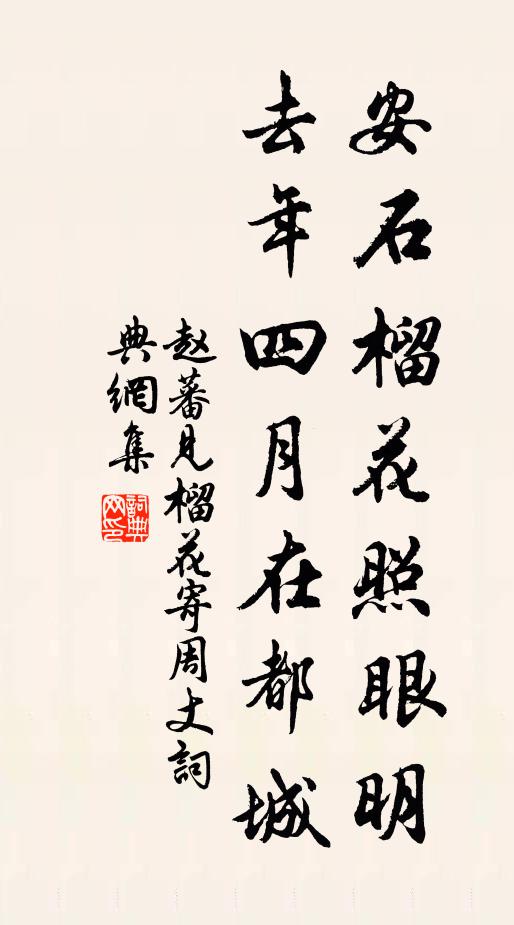 安石榴花照眼明
去年四月在都城
赵蕃見榴花寄周丈詞
典網集
詞典网印